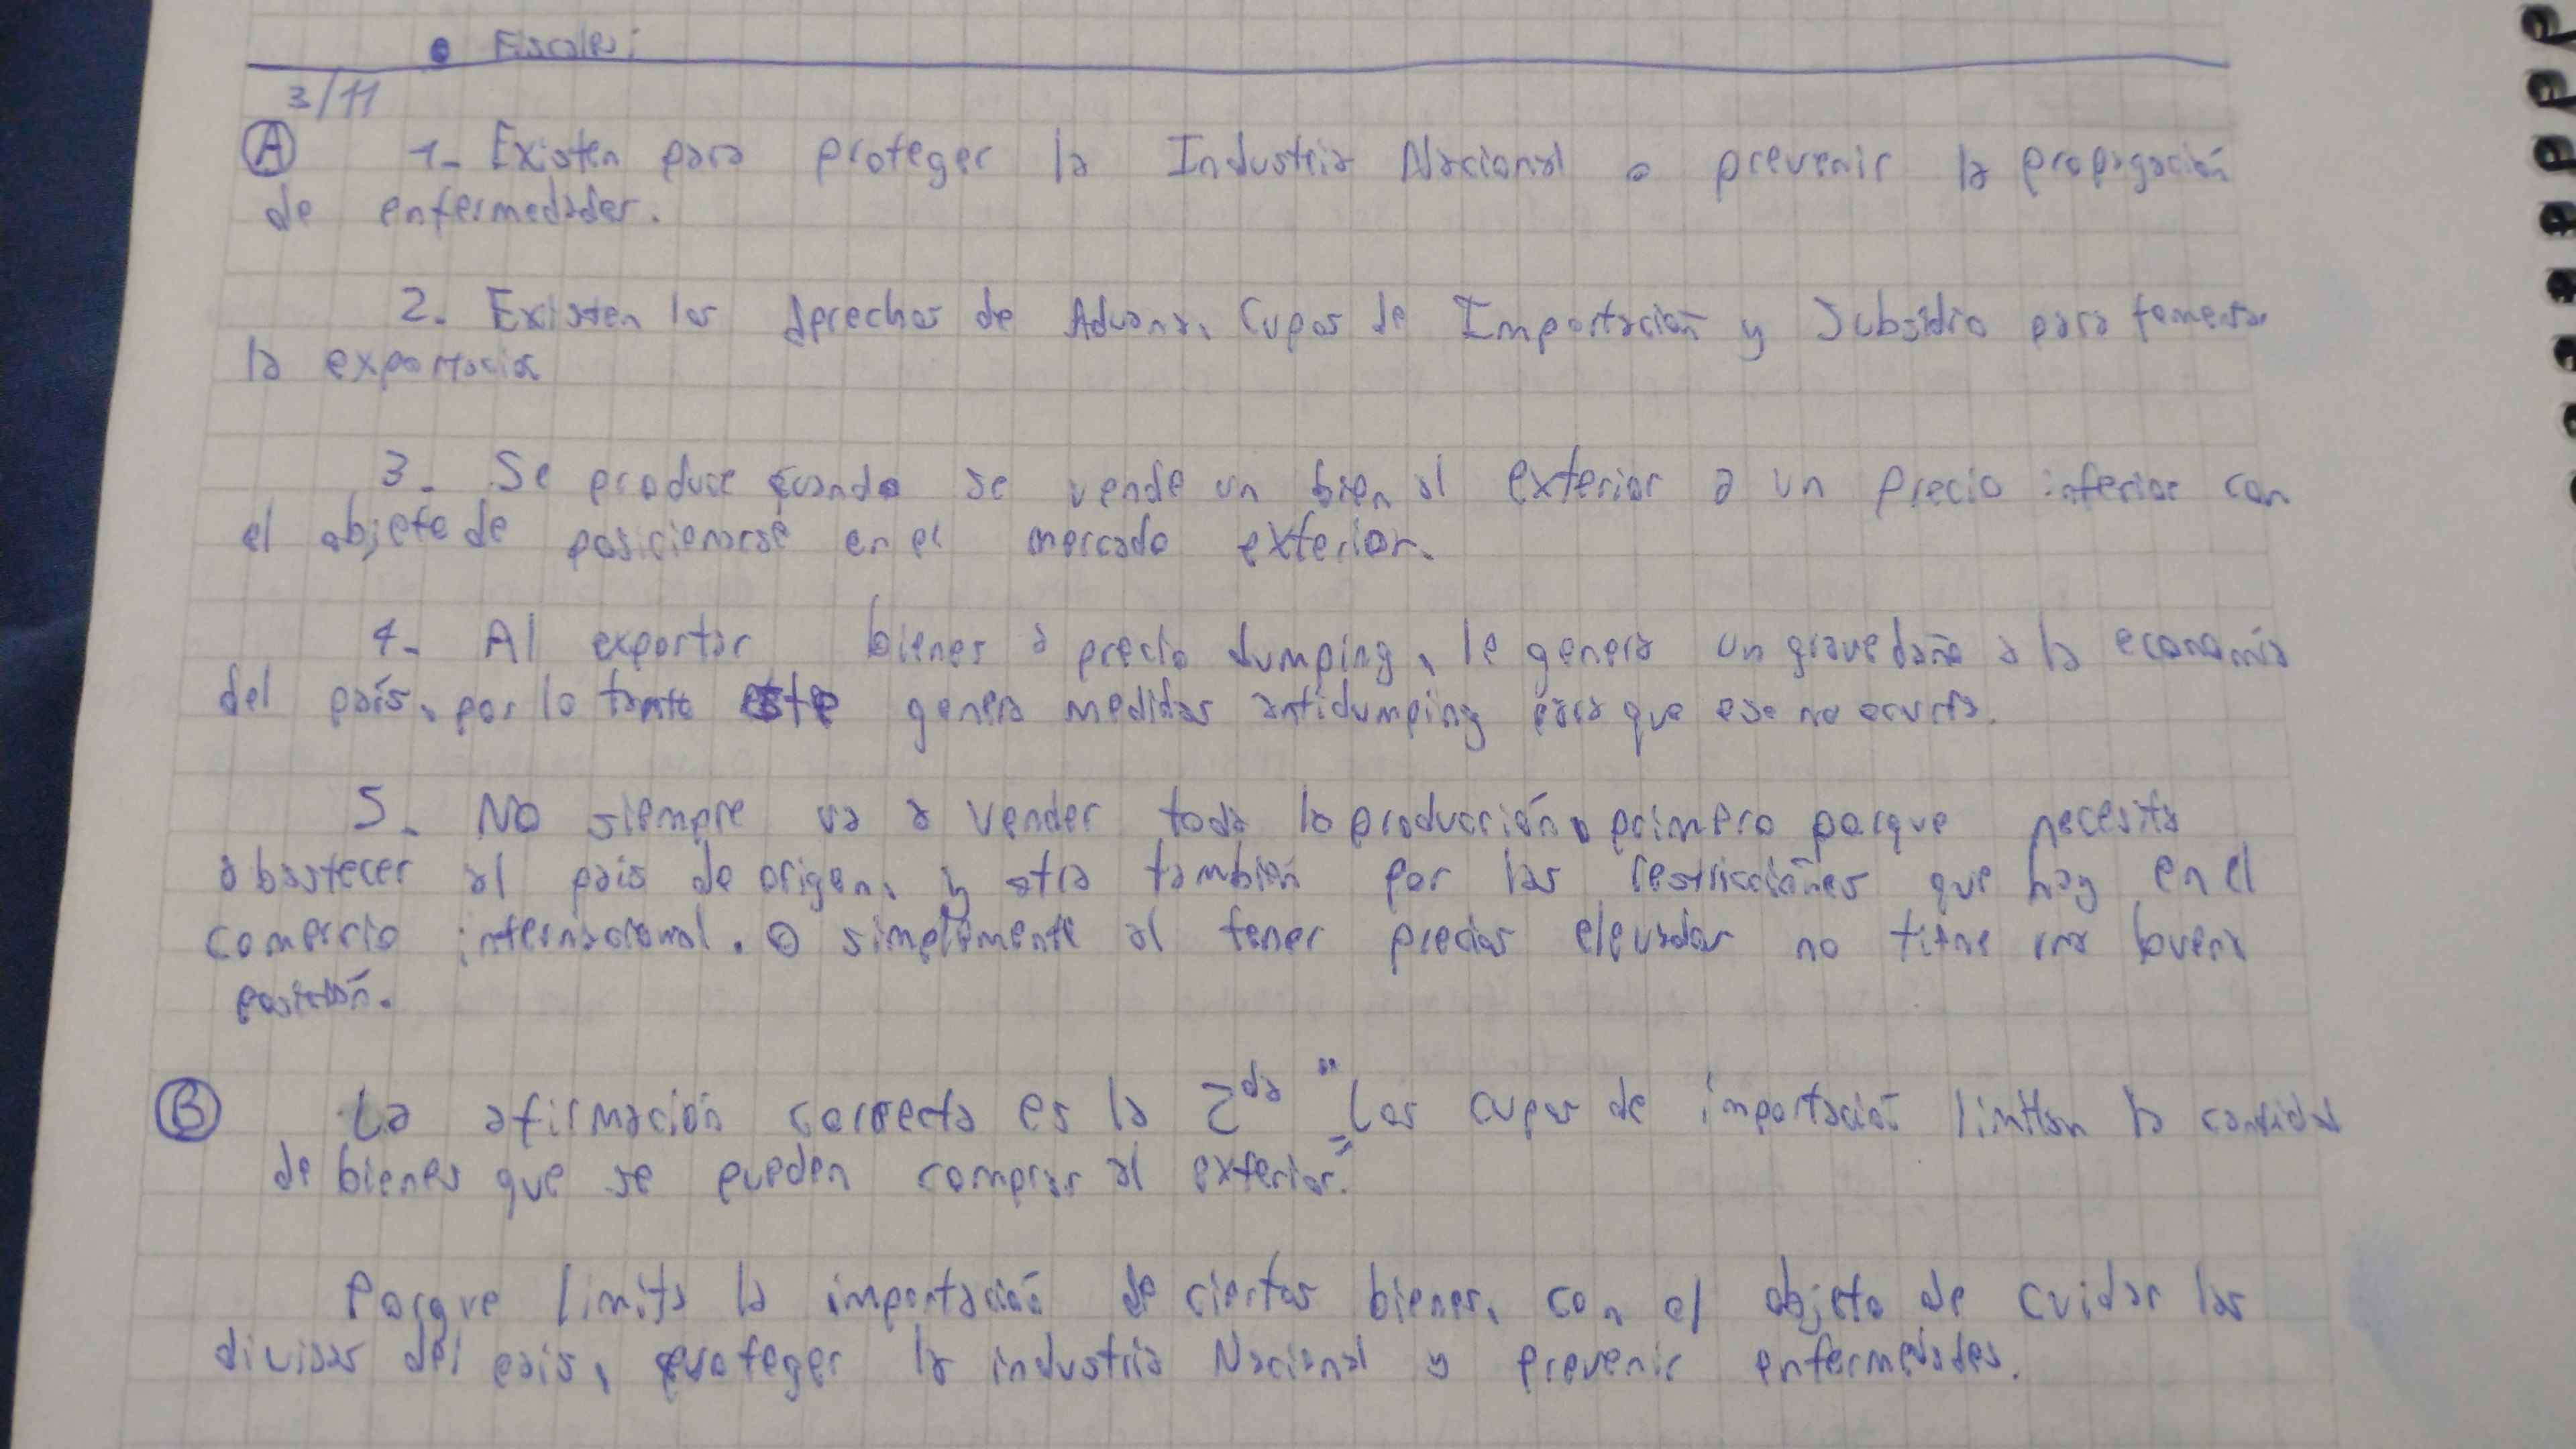 • Fiscales:
3/11
Ⓐ 1- Existen para proteger la Industria Nacional o prevenir la propagación
de enfermedades.
2- Existen los derechos de Aduana, Cupos de Importación y Subsidio para fomentar
la exportación
3- Se produce cuando se vende un bien al exterior a un precio inferior con
el objeto de posicionarse en el mercado exterior.
4- Al exportar bienes a precio dumping, le genera un grave daño a la economía
del país, por lo tanto este genera medidas antidumping para que eso no ocurra.
5- No siempre va a vender toda la producción, primero porque necesita
abastecer al país de origen, y otra también por las restricciones que hay en el
comercio internacional. O simplemente al tener precios elevados no tiene una buena
posición.
Ⓑ La afirmación correcta es la 2da "Los cupos de importación limitan la cantidad
de bienes que se pueden comprar al exterior."
Porque limita la importación de ciertos bienes, con el objeto de cuidar las
divisas del país, proteger la industria Nacional y prevenir enfermedades.